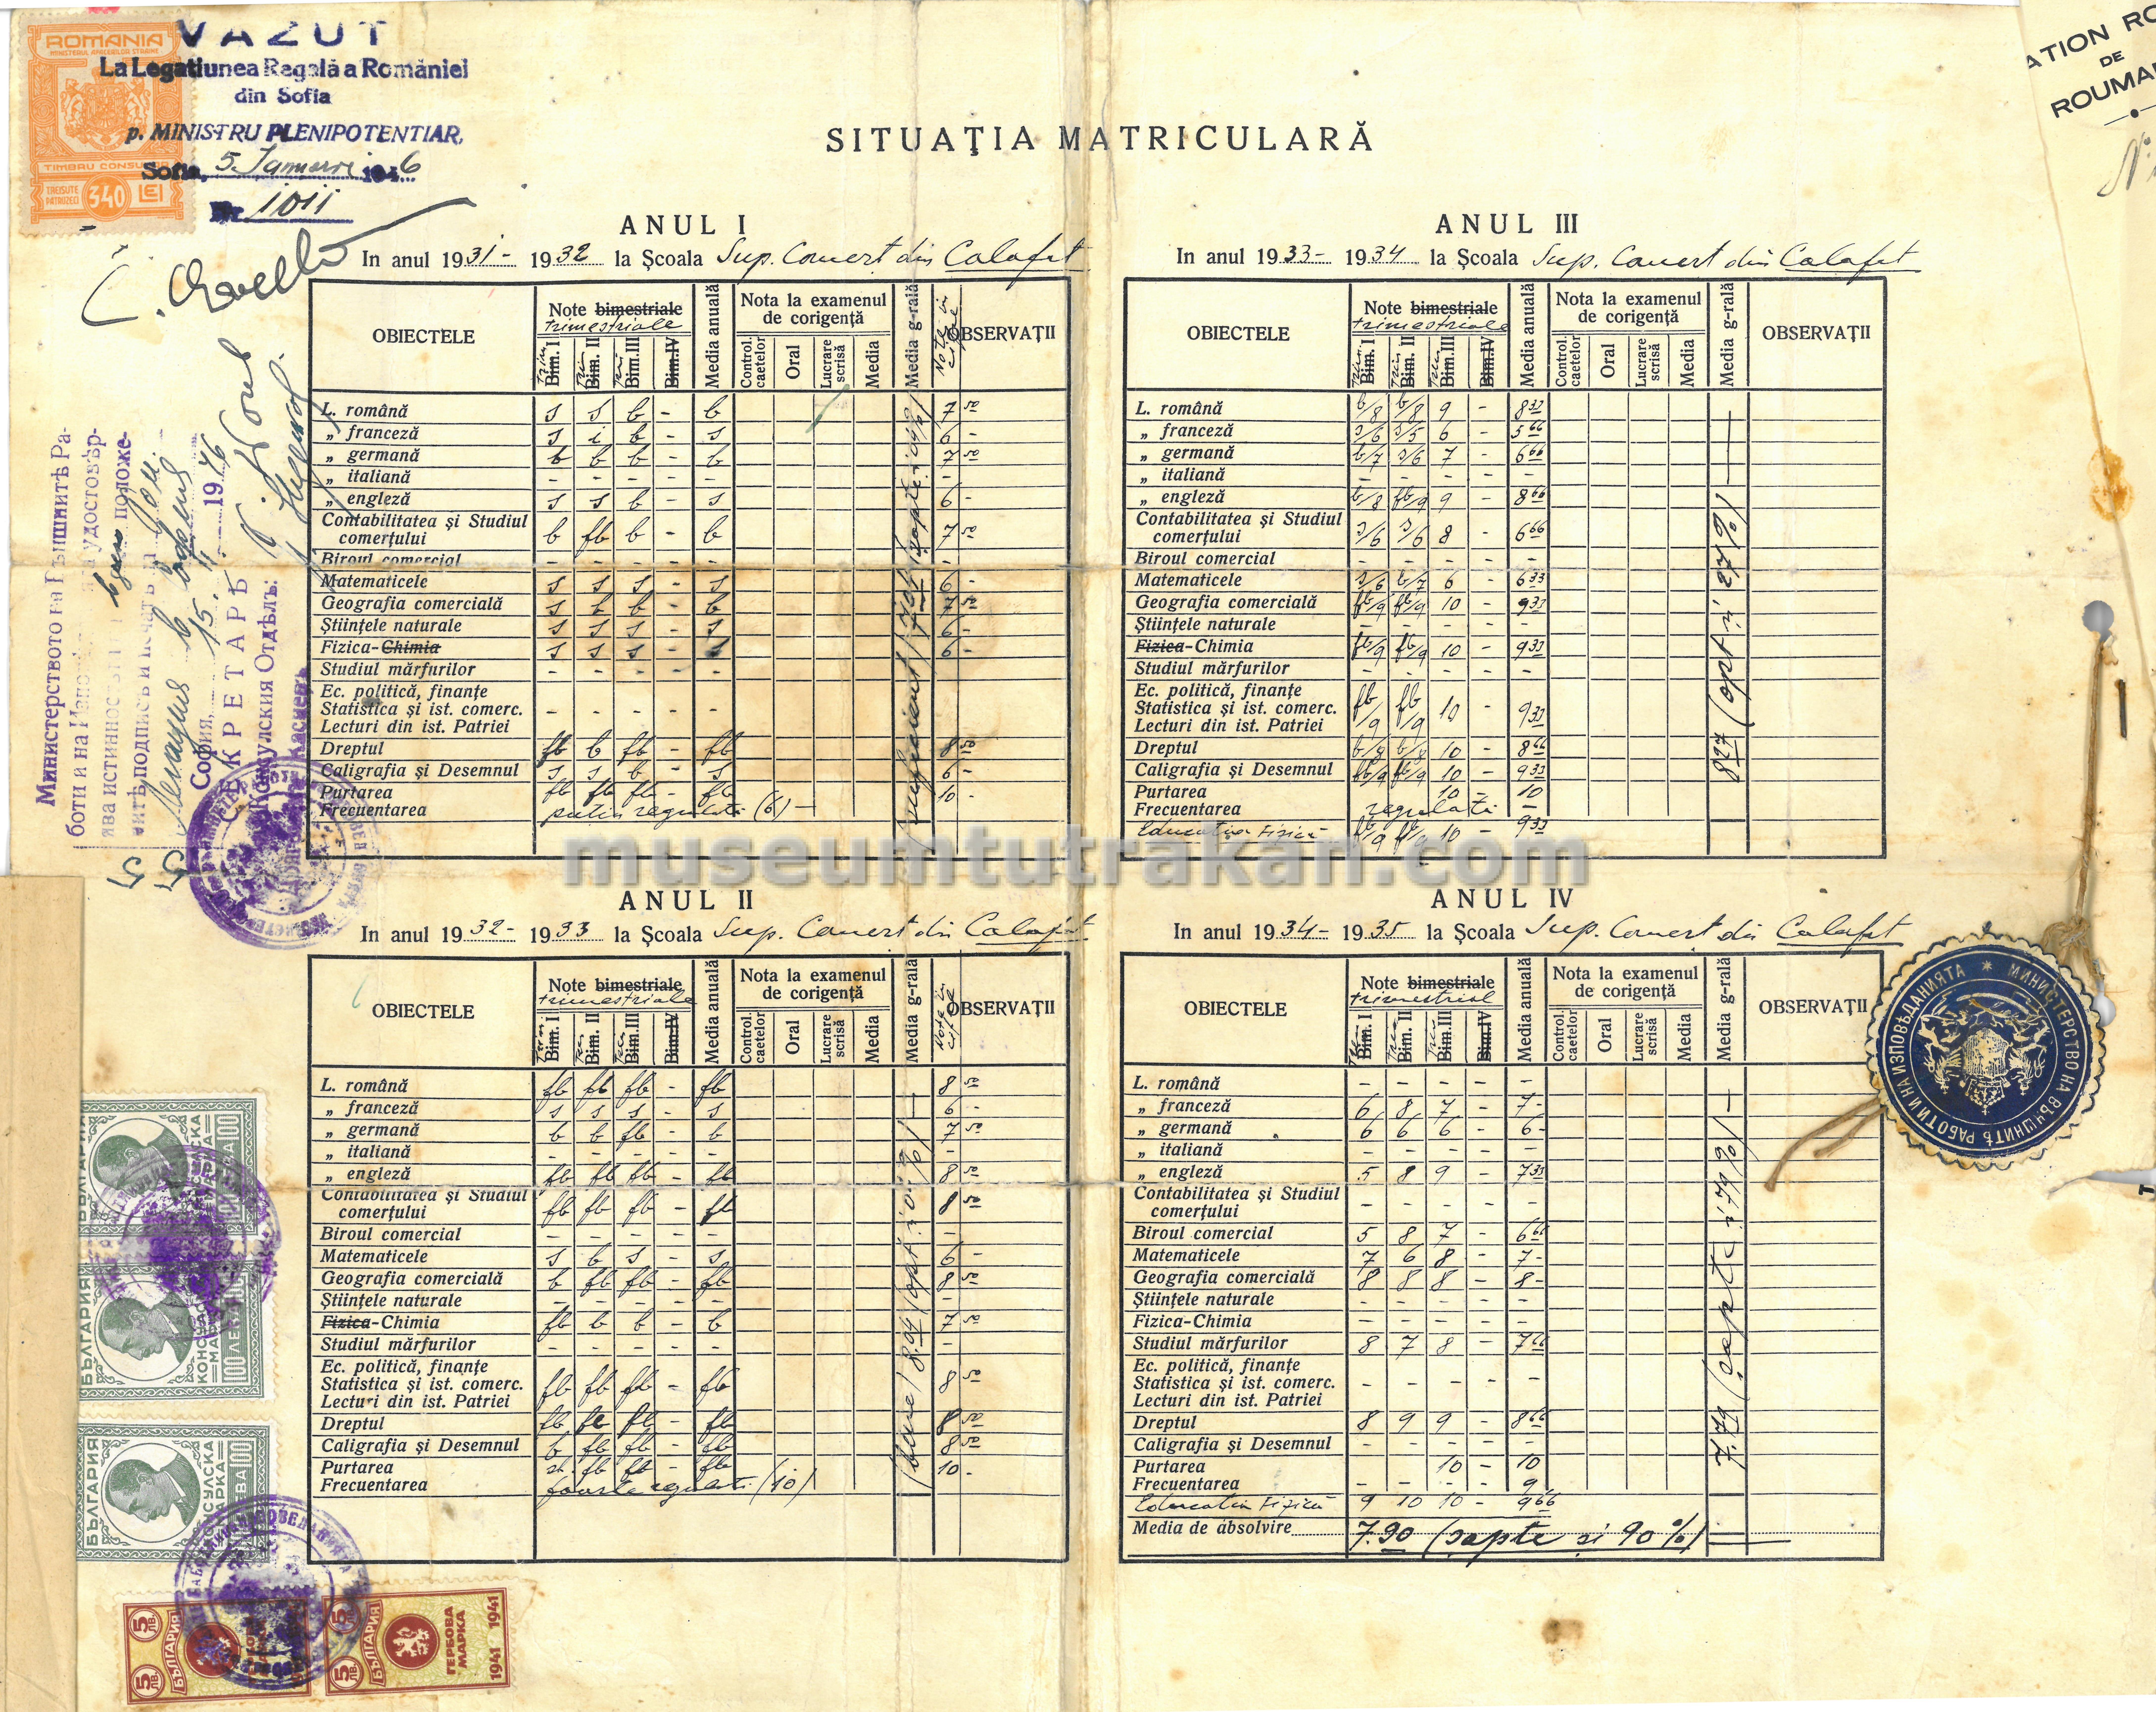 VĂZUT
La Legatiunea Regală a României
din Sofia
p. MINISTRU PLENIPOTENTIAR,
Sofia, 5. Ianuarii 1946
Nr 1011
ROMANIA
MINISTERUL AFACERILOR STRAINE
TIMBRU CONSULAR
TREISUTE PATRUZECI 340 LEI
ATION RO
DE
ROUMA
SITUAŢIA MATRICULARĂ
ANUL I
In anul 1931- 1932 la Şcoala Sup. Comerţ din Calafat
OBIECTELE
Note bimestriale
trimestriale
Bim. I Bim. II Bim. III Bim. IV
Media anuală
Nota la examenul de corigenţă
Control. caetelor Oral Lucrare scrisă Media
Media g-rală
Note in cifre
OBSERVAŢII
L. română s s b - b 7 50
„ franceză s i b - s 6 -
„ germană b b b - b 7 50
„ italiană - - - - - -
„ engleză s s b - s 6 -
Contabilitatea şi Studiul
comerţului b fb b - b 7 50
Biroul comercial - - - - - -
Matematicele s s s - s 6 -
Geografia comercială s b b - b 7 50
Ştiinţele naturale s s s - s 6 -
Fizica-Chimia s s s - s 6 -
Studiul mărfurilor - - - - -
Ec. politică, finanţe
Statistica şi ist. comerc. - - - - -
Lecturi din ist. Patriei
Dreptul fb b fb - fb 8 50
Caligrafia şi Desemnul s s b - s 6 -
Purtarea fb fb fb - fb 10 -
Frecuentarea putin regulată (6) -
ANUL III
In anul 1933- 1934 la Şcoala Sup. Comerţ din Calafat
OBIECTELE
Note bimestriale
trimestriale
Bim. I Bim. II Bim. III Bim. IV
Media anuală
Nota la examenul de corigenţă
Control. caetelor Oral Lucrare scrisă Media
Media g-rală
OBSERVAŢII
L. română b/8 b/8 9 - 8 33
„ franceză s/6 s/5 6 - 5 66
„ germană b/7 s/6 7 - 6 66
„ italiană - - - - -
„ engleză b/8 fb/9 9 - 8 66
Contabilitatea şi Studiul
comerţului s/6 s/6 8 - 6 66
Biroul comercial - - - - -
Matematicele s/6 b/7 6 - 6 33
Geografia comercială fb/9 fb/9 10 - 9 33
Ştiinţele naturale - - - - -
Fizica-Chimia fb/9 fb/9 10 - 9 33
Studiul mărfurilor - - - - -
Ec. politică, finanţe
Statistica şi ist. comerc. fb/9 fb/9 10 - 9 33
Lecturi din ist. Patriei
Dreptul b/8 b/8 10 - 8 66
Caligrafia şi Desemnul fb/9 fb/9 10 - 9 33
Purtarea 10 - 10
Frecuentarea regulată -
Educaţia Fizică fb/9 fb/9 10 - 9 33
8 27 (opt și 27%)
museumtutrakan.com
ANUL II
In anul 1932- 1933 la Şcoala Sup. Comerţ din Calafat
OBIECTELE
Note bimestriale
trimestriale
Bim. I Bim. II Bim. III Bim. IV
Media anuală
Nota la examenul de corigenţă
Control. caetelor Oral Lucrare scrisă Media
Media g-rală
Note in cifre
OBSERVAŢII
L. română fb fb fb - fb 8 50
„ franceză s s s - s 6 -
„ germană b b fb - b 7 50
„ italiană - - - - - -
„ engleză fb fb fb - fb 8 50
Contabilitatea şi Studiul
comerţului fb fb fb - fb 8 50
Biroul comercial - - - - - -
Matematicele s b s - s 6 -
Geografia comercială b fb fb - fb 8 50
Ştiinţele naturale - - - - - -
Fizica-Chimia fb b b - b 7 50
Studiul mărfurilor - - - - - -
Ec. politică, finanţe
Statistica şi ist. comerc. fb fb fb - fb 8 50
Lecturi din ist. Patriei
Dreptul fb fb fb - fb 8 50
Caligrafia şi Desemnul b fb fb - fb 8 50
Purtarea fb fb - fb 10 -
Frecuentarea foarte regulată (10)
ANUL IV
In anul 1934- 1935 la Şcoala Sup. Comerţ din Calafat
OBIECTELE
Note bimestriale
trimestrial
Bim. I Bim. II Bim. III Bim. IV
Media anuală
Nota la examenul de corigenţă
Control. caetelor Oral Lucrare scrisă Media
Media g-rală
OBSERVAŢII
L. română - - - - -
„ franceză 6 8 7 - 7 -
„ germană 6 6 6 - 6 -
„ italiană - - - - -
„ engleză 5 8 9 - 7 33
Contabilitatea şi Studiul
comerţului - - - - -
Biroul comercial 5 8 7 - 6 66
Matematicele 7 6 8 - 7 -
Geografia comercială 8 8 8 - 8 -
Ştiinţele naturale - - - - -
Fizica-Chimia - - - - -
Studiul mărfurilor 8 7 8 - 7 66
Ec. politică, finanţe
Statistica şi ist. comerc. - - - - -
Lecturi din ist. Patriei
Dreptul 8 9 9 - 8 66
Caligrafia şi Desemnul - - - - -
Purtarea 10 - 10
Frecuentarea - - - - 9
Educatia Fizică 9 10 10 - 9 66
Media de absolvire 7.90 (sapte si 90%)
7.79 (sapte și 79%)
Министерството на Външнитѣ Ра-
боти и на
удостовѣр-
ява истинностьта
положе-
нитѣ подписъ и печатъ на
София, 15. II 1946
СЕКРЕТАРЬ
Консулския Отдѣлъ:
МИНИСТЕРСТВО НА ВЪНШНИТѢ РАБОТИ И НА ИЗПОВѢДАНИЯТА
БЪЛГАРИЯ
КОНСУЛСКА МАРКА
100 ЛЕВА 100
БЪЛГАРИЯ
КОНСУЛСКА МАРКА
100 ЛЕВА 100
БЪЛГАРИЯ
КОНСУЛСКА МАРКА
100 ЛЕВА 100
5 ЛВ. БЪЛГАРИЯ 5 ЛВ.
5 ЛВ. БЪЛГАРИЯ 5 ЛВ.
ГЕРБОВА МАРКА
1941 1941